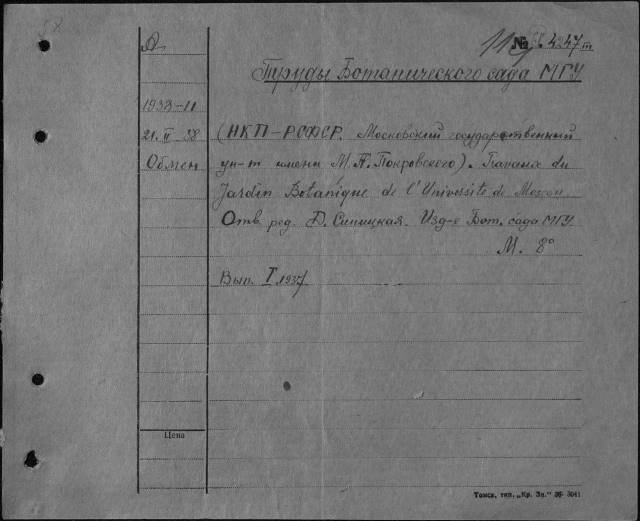 Д
№ 4247 т
Труды Ботанического сада МГУ
1938-11
21.II 38
Обмен
(НКП-РСФСР. Московский государственный
ун-т имени М.Н. Покровского). Travaux du
Jardin Botanique de l'Université de Moscou.
Отв. ред. Д. Синицкая. Изд-е Бот. сада МГУ.
М. 8°
Вып. I 1937
Цена
Томск, тип. „Кр. Зн." 36- 3041